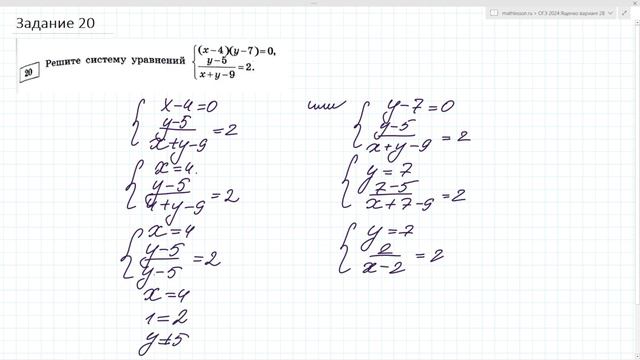 mathlesson.ru > ОГЭ 2024 Ященко вариант 28
Задание 20
20 Решите систему уравнений { (x−4)(y−7)=0,
(y−5)/(x+y−9)=2.
{ x−4=0
(y−5)/(x+y−9)=2
{ x=4.
(y−5)/(4+y−9)=2
{ x=4
(y−5)/(y−5)=2
x=4
1=2
y≠5
или { y−7=0
(y−5)/(x+y−9)=2
{ y=7
(7−5)/(x+7−9)=2
{ y=7
2/(x−2)=2